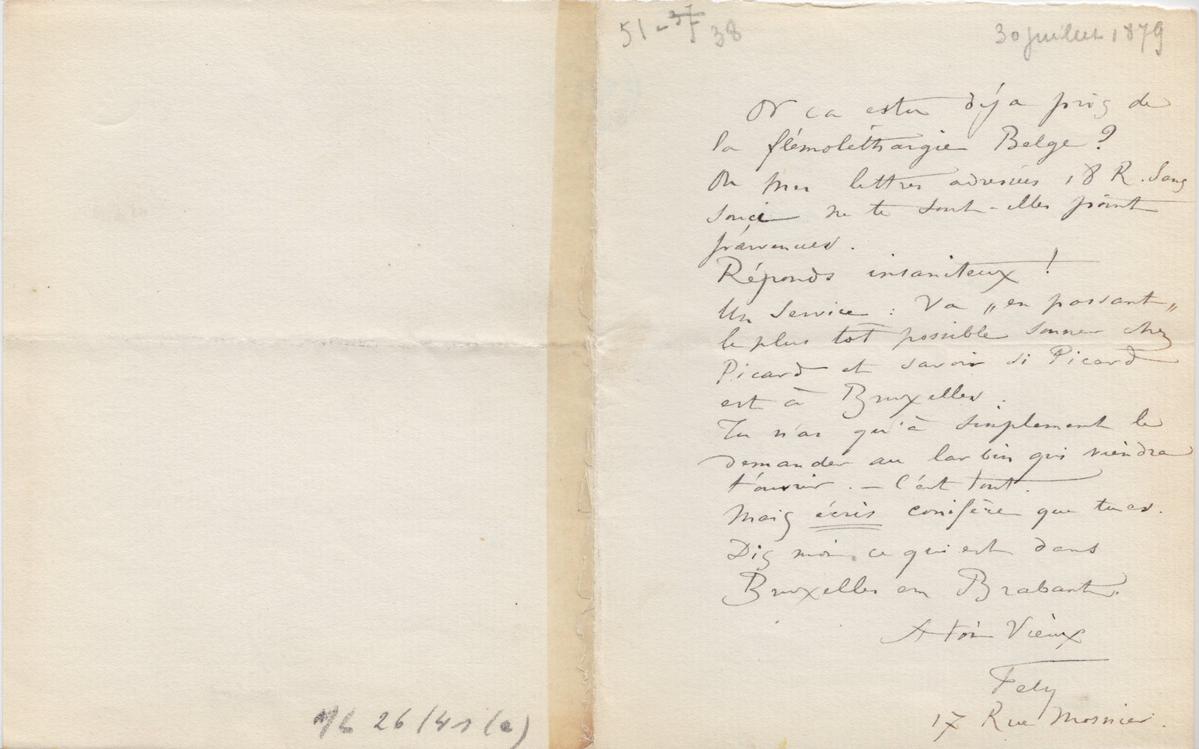 51 - 37 38
30 juillet 1879
Or ca estu déja pris de
la flémoléthargie Belge ?
Ou mes lettres adressées 18 R. Sans
souci ne te sont-elles point
parvenues.
Réponds insaniteux !
Un Service : Va „en passant„
le plus tot possible sonner chez
Picard et savoir si Picard
est à Bruxelles.
Tu n'as qu'à simplement le
demander au larbin qui viendra
t'ouvrir. – C'est tout.
Mais écris conifère que tu es.
Dis moi ce qui est dans
Bruxelles en Brabant.
A toi Vieux
Fely
17 Rue Mosnier.
26/41(a)